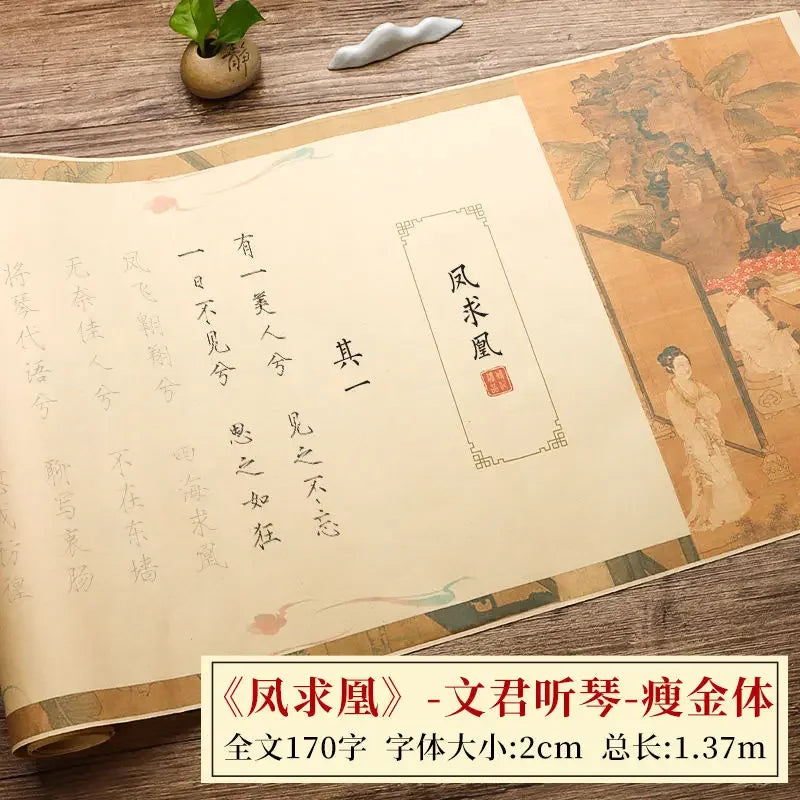 静
凤求凰
其一
有一美人兮 见之不忘
一日不见兮 思之如狂
凤飞翱翔兮 四海求凰
无奈佳人兮 不在东墙
将琴代语兮 聊写衷肠
我彷徨
《凤求凰》-文君听琴-瘦金体
全文170字 字体大小:2cm 总长:1.37m